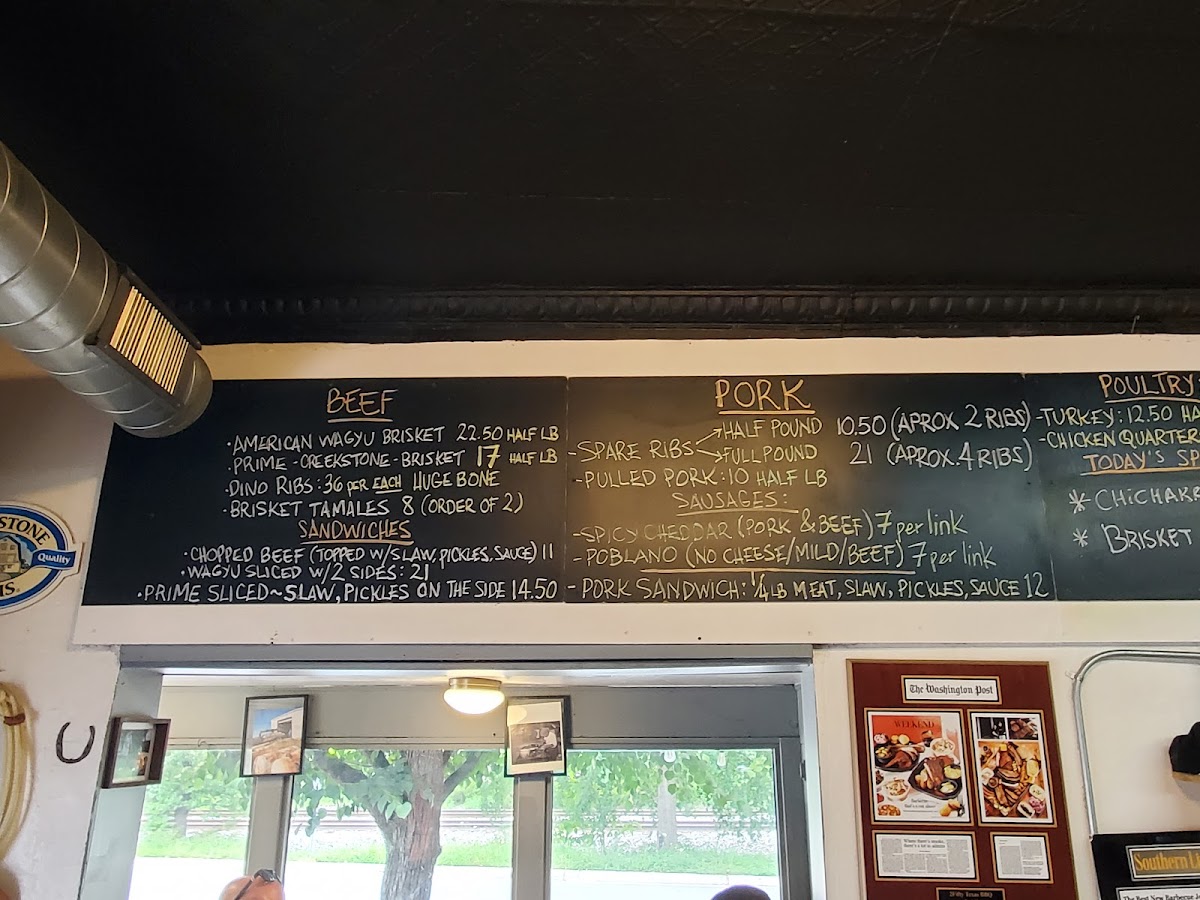 BEEF
·AMERICAN WAGYU BRISKET 22.50 HALF LB
·PRIME-CREEKSTONE-BRISKET 17 HALF LB
·DINO RIBS: 36 PER EACH HUGE BONE
·BRISKET TAMALES 8 (ORDER OF 2)
SANDWICHES
·CHOPPED BEEF (TOPPED W/SLAW, PICKLES, SAUCE) 11
·WAGYU SLICED W/2 SIDES: 21
·PRIME SLICED~SLAW, PICKLES ON THE SIDE 14.50
PORK
-SPARE RIBS HALF POUND 10.50 (APROX 2 RIBS)
FULL POUND 21 (APROX. 4 RIBS)
-PULLED PORK: 10 HALF LB
SAUSAGES:
-SPICY CHEDDAR (PORK & BEEF) 7 per link
-POBLANO (NO CHEESE/MILD/BEEF) 7 per link
-PORK SANDWICH: 1/4 LB MEAT, SLAW, PICKLES, SAUCE 12
POULTRY
-TURKEY: 12.50 HA
-CHICKEN QUARTER
TODAY'S SP
* CHICHAR
* BRISKET
STONE
Quality
MS
The Washington Post
WEEKEND
Where there's smoke,
there's a
2Fifty Texas BBQ
Southern Li
The Best New Barbecue